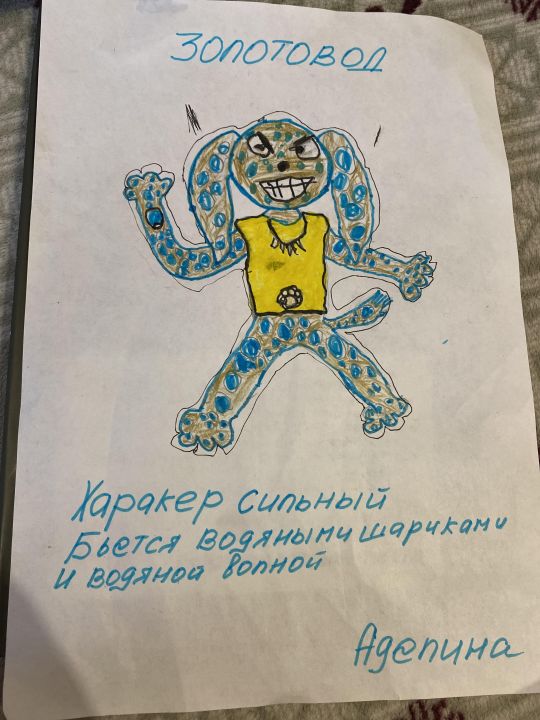 ЗОЛОТОВОД
Харакер сильный
Бьется водяными шариками
и водяной волной
Аделина